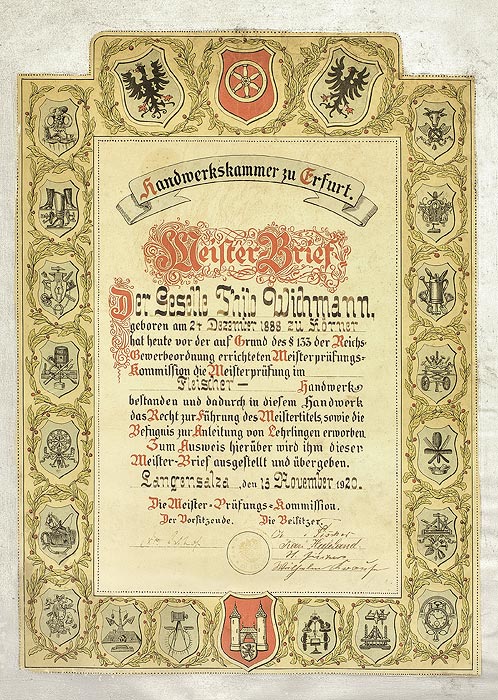 Handwerkskammer zu Erfurt.
Meister-Brief
Der Geselle Thilo Wichmann,
geboren am 24 Dezember 1888 zu Körner
hat heute vor der auf Grund des § 133 der Reichs-
Gewerbeordnung errichteten Meisterprüfungs-
Kommission die Meisterprüfung im
Fleischer — Handwerk
bestanden und dadurch in diesem Handwerk
das Recht zur Führung des Meistertitels, sowie die
Befugnis zur Anleitung von Lehrlingen erworben.
Zum Ausweis hierüber wird ihm dieser
Meister-Brief ausgestellt und übergeben.
Langensalza, den 15 November 1920.
Die Meister-Prüfungs-Kommission.
Der Vorsitzende. Die Beisitzer.
Wilhelm